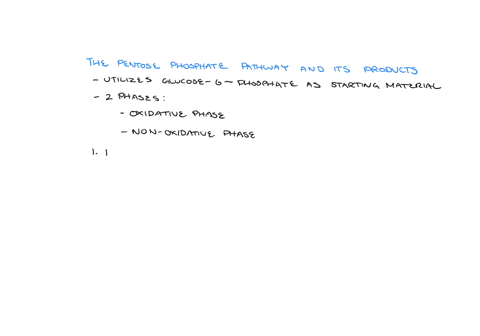 THE PENTOSE PHOSPHATE PATHWAY AND ITS PRODUCTS
- UTILIZES GLUCOSE-6-PHOSPHATE AS STARTING MATERIAL
- 2 PHASES:
- OXIDATIVE PHASE
- NON-OXIDATIVE PHASE
1. I